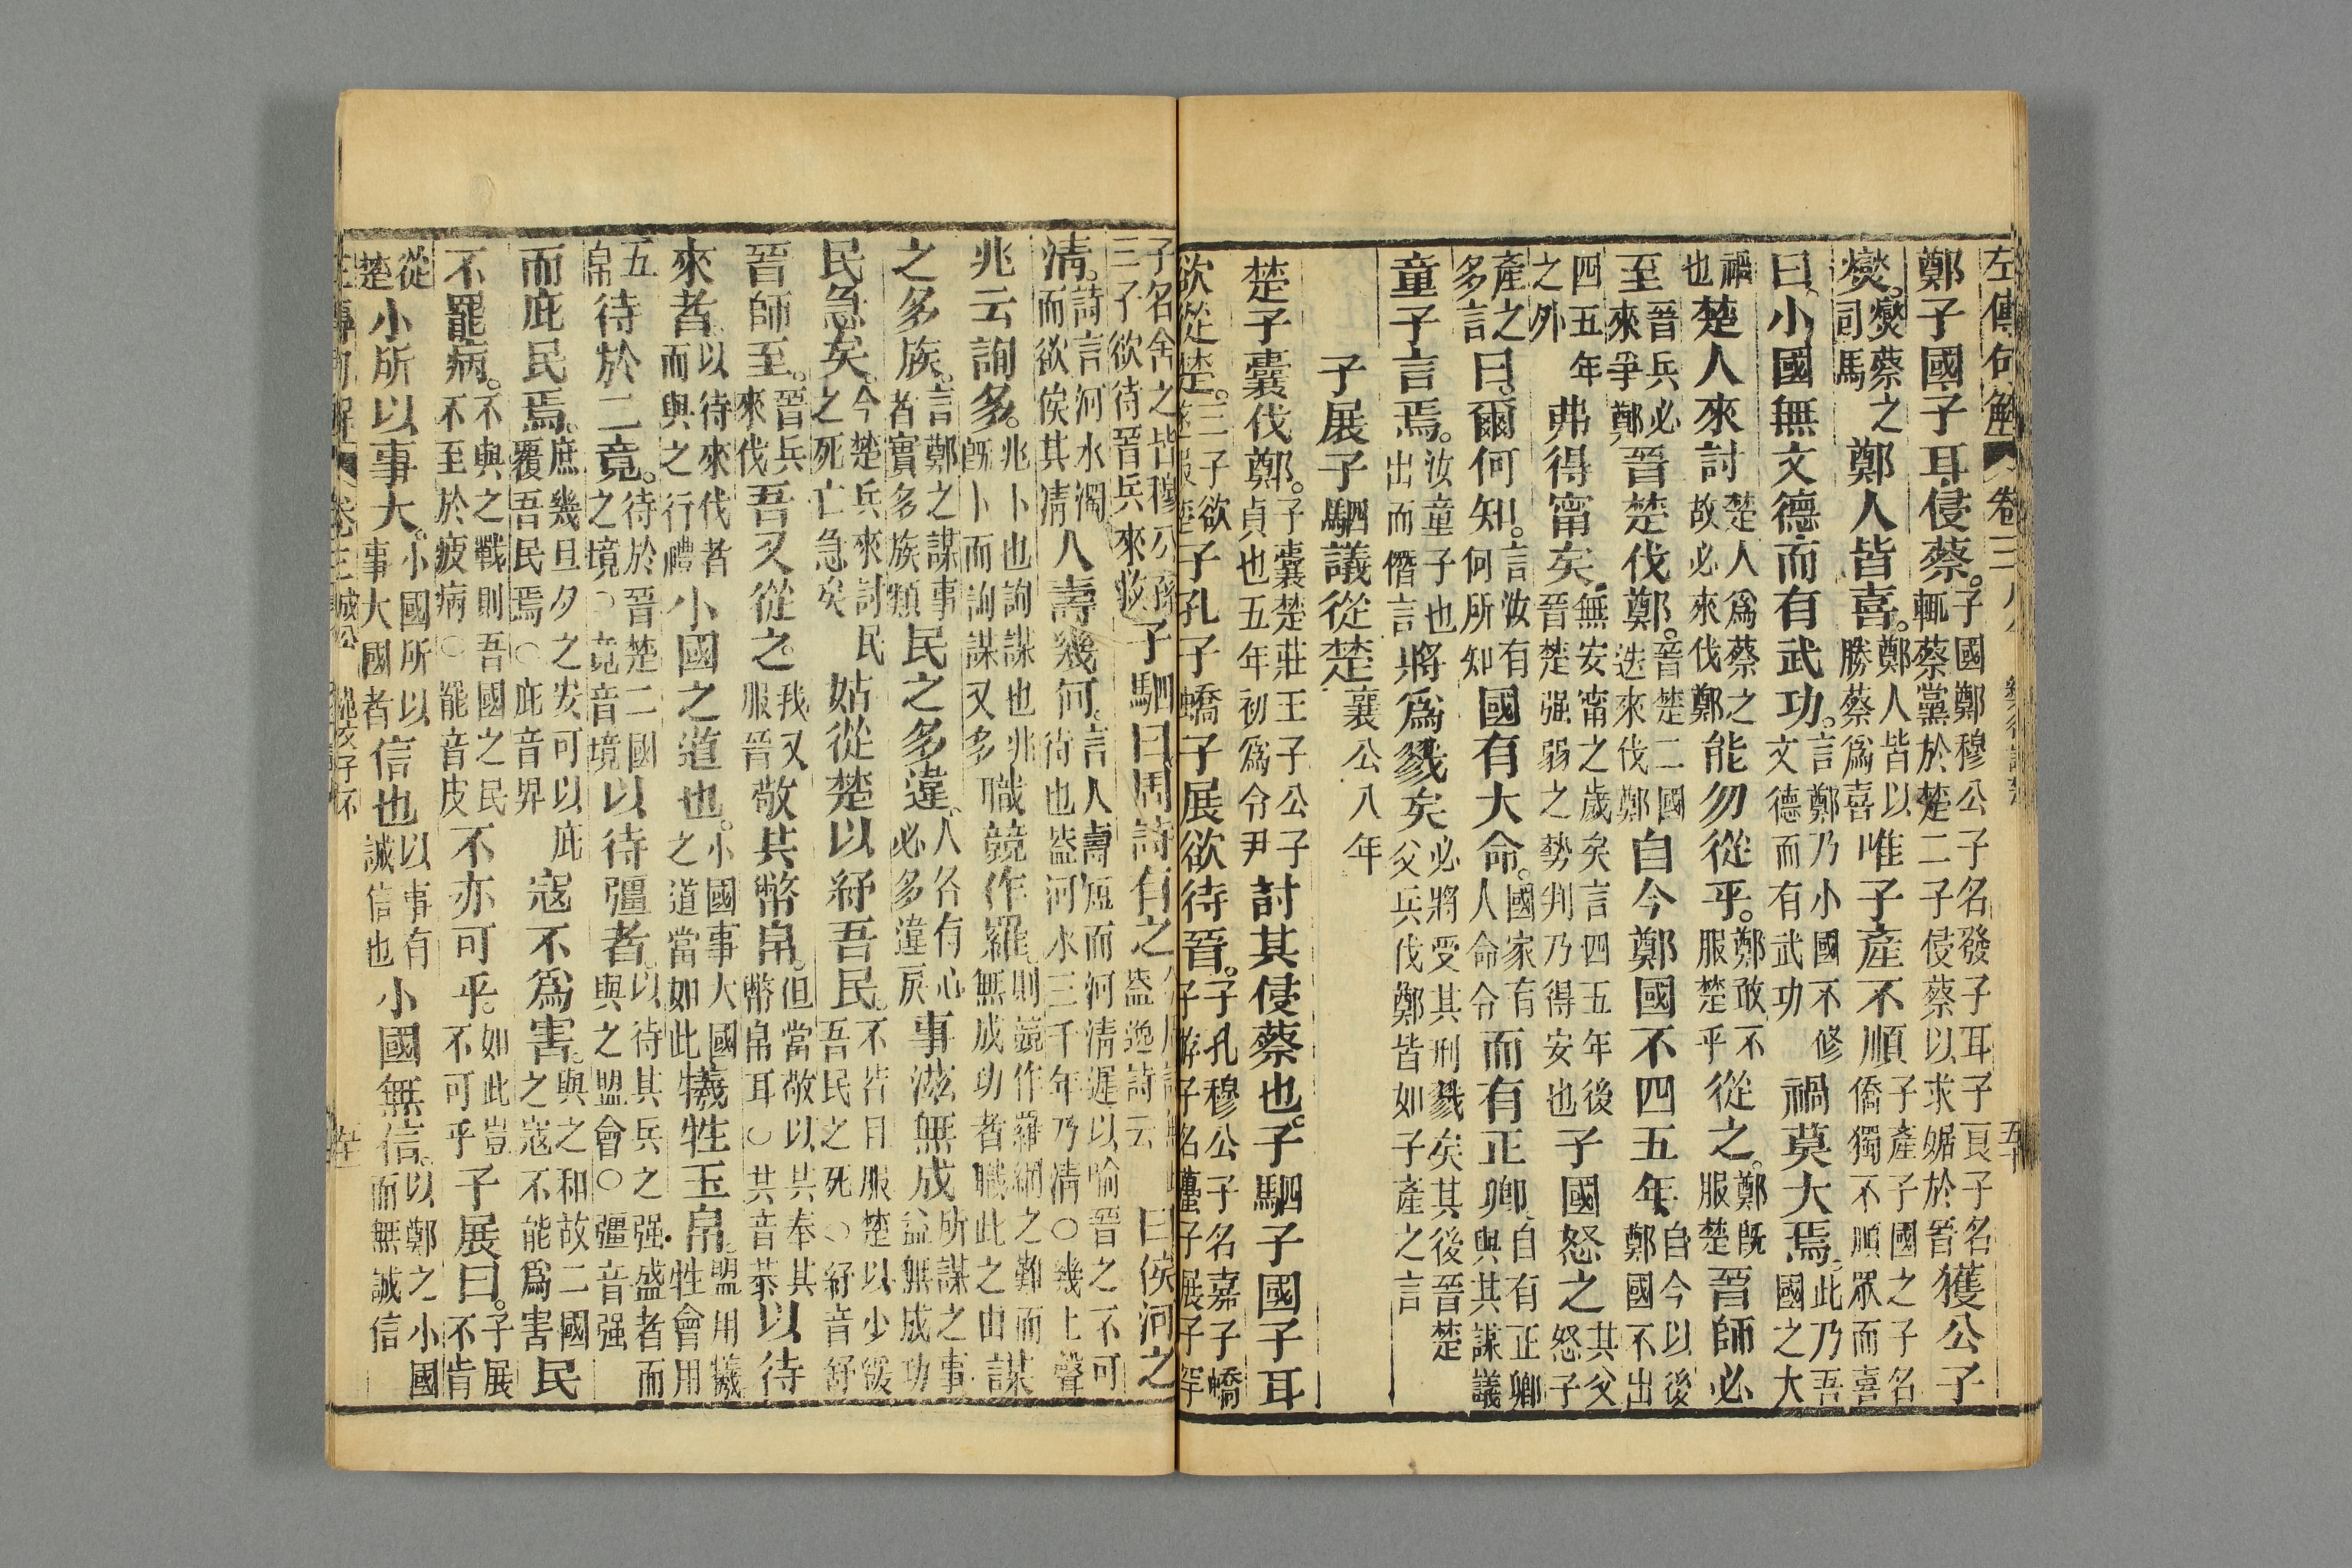 左傳句解 卷三 五十
鄭子國子耳侵蔡。子國鄭穆公子名發子耳子良子名輒蔡黨於楚二子侵蔡以求媚於晉獲公子
燮。燮蔡之司馬鄭人皆喜。鄭人皆以勝蔡爲喜唯子產不順子產子國之子名僑獨不順眾而喜
曰。小國無文德而有武功。言鄭乃小國不修文德而有武功禍莫大焉。此乃吾國之大
禍也楚人來討楚人爲蔡之故必來伐鄭能勿從乎。鄭敢不服楚乎從之。鄭旣服楚晉師必
至晉兵必來爭鄭晉楚伐鄭。晉楚二國迭來伐鄭自今鄭國不四五年自今以後鄭國不出
四五年之外弗得甯矣。無安甯之歲矣言四五年後晉楚强弱之勢判乃得安也子國怒之其父怒子
產之多言曰。爾何知。言汝有何所知國有大命。國家有人命令而有正卿。自有正卿與其謀議
童子言焉。汝童子也出而僭言將爲戮矣必將受其刑戮矣其後晉楚父兵伐鄭皆如子產之言
子展子駟議從楚襄公八年
楚子囊伐鄭。子囊楚莊王子公子貞也五年初爲令尹討其侵蔡也。子駟子國子耳
欲從楚。三子欲遂服楚子孔子蟜子展欲待晉。子孔穆公子名嘉子蟜子游子名蠆子展子罕
子名舍之皆穆公孫三子欲待晉兵來救子駟曰周詩有之盜逸詩云曰俟河之
清。詩言河水濁而欲俟其清人壽幾何。言人壽短而河清遲以喻晉之不可待也盜河水三千年乃清○幾上聲
兆云詢多。兆卜也詢謀也兆旣卜而詢謀又多職競作羅。則競作羅網之難而無成功者職此之由謀
之多族。言鄭之謀事者實多族類民之多違。人各有心必多違戾事滋無成所謀之事益無成功
民急矣。今楚兵來討民之死亡急矣姑從楚以紓吾民。不若日服楚以少緩吾民之死○紓音舒
晉師至。晉兵來伐吾又從之。我又服晉敬共幣帛。但當敬以共奉其幣帛耳○共音恭以待
來者。以待來伐者而與之行禮小國之道也。小國事大國之道當如此犧牲玉帛。盟用犧牲會用
五帛待於二竟。待於晉楚二國之境○竟音境以待彊者。以待其兵之强盛者而與之盟會○彊音强
而庇民焉。庶幾旦夕之安可以庇覆吾民焉○庇音畀寇不爲害。與之和故二國之寇不能爲害民
不罷病。不與之戰則吾國之民不至於疲病○罷音皮不亦可乎。如此豈不可乎子展曰。子展不肯
從楚小所以事大。小國所以事大國者信也以事有誠信也小國無信。以鄭之小國而無誠信
左傳句解 卷三